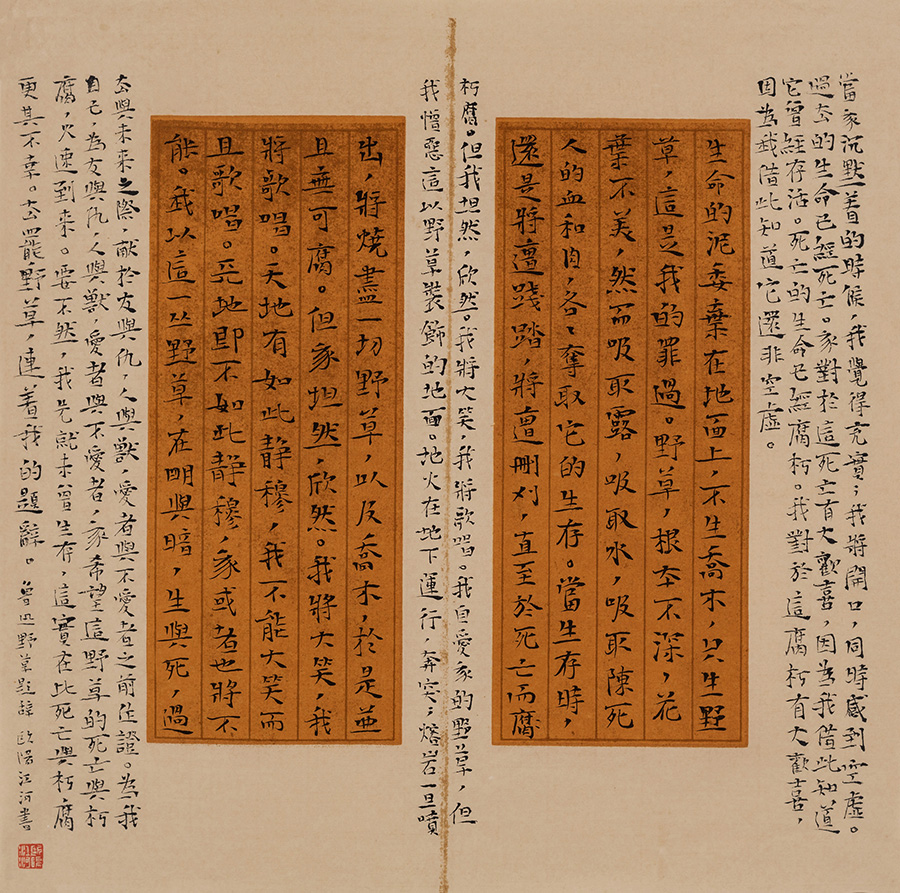 當我沉默着的時候，我覺得充實；我將開口，同時感到空虛。
過去的生命已經死亡。我對於這死亡有大歡喜，因為我借此知道
它曾經存活。死亡的生命已經腐朽。我對於這腐朽有大歡喜，
因為我借此知道它還非空虛。
生命的泥委棄在地面上，不生喬木，只生野
草，這是我的罪過。野草，根本不深，花
葉不美，然而吸取露，吸取水，吸取陳死
人的血和肉，各々奪取它的生存。當生存時，
還是將遭踐踏，將遭刪刈，直至於死亡而腐
朽腐。但我坦然，欣然。我將大笑，我將歌唱。我自愛我的野草，但
我憎惡這以野草裝飾的地面。地火在地下運行，奔突；熔岩一旦噴
出，將燒盡一切野草，以及喬木，於是並
且無可腐。但我坦然，欣然。我將大笑，我
將歌唱。天地有如此静穆，我不能大笑而
且歌唱。天地即不如此静穆，我或者也將不
能。我以這一丛野草，在明與暗，生與死，過
去與未來之際，献於友與仇，人與獸，愛者與不愛者之前作證。為我
自己，為友與仇，人與獸，愛者與不愛者，我希望這野草的死亡與朽
腐，火速到來。要不然，我先就未曾生存，這實在比死亡與朽腐
更其不幸。去罷，野草，連着我的題辭。魯迅野草題辭 歐陽江河書